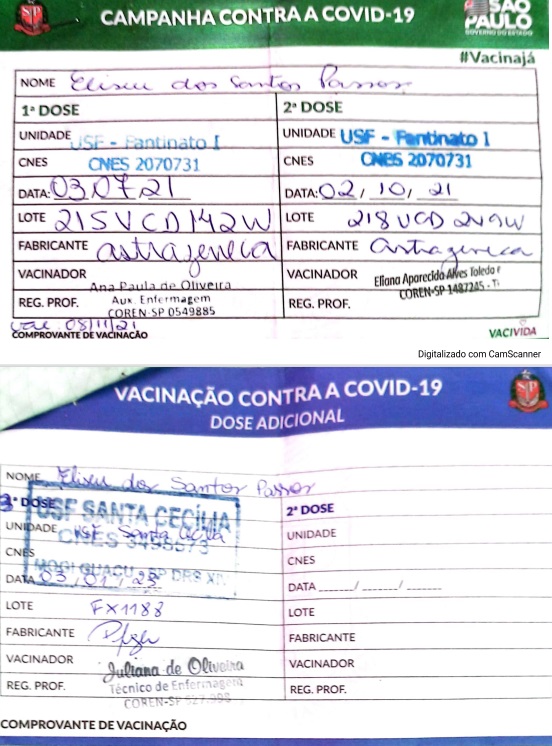 CAMPANHA CONTRA A COVID-19
SÃO PAULO
GOVERNO DO ESTADO
#Vacinajá
NOME Eliseu dos Santos Passos
1ª DOSE
UNIDADE USF - Fantinato I
CNES CNES 2070731
DATA: 03.07.21
LOTE 215VCD142W
FABRICANTE astrazeneca
VACINADOR Ana Paula de Oliveira
Aux. Enfermagem
REG. PROF. COREN-SP 0549885
08/11/21
COMPROVANTE DE VACINAÇÃO
2ª DOSE
UNIDADE USF - Fantinato I
CNES CNES 2070731
DATA: 02/10/21
LOTE 218VCD249W
FABRICANTE Astrazeneca
VACINADOR Eliana Aparecida Alves Toledo
REG. PROF. COREN-SP 1487245
VACIVIDA
Digitalizado com CamScanner
VACINAÇÃO CONTRA A COVID-19
DOSE ADICIONAL
NOME Eliseu dos Santos Passos
3ª DOSE
USF SANTA CECÍLIA
UNIDADE USF Santa Cecília
CNES
MOGI GUAÇU - SP DRS XIV
DATA 03/01/23
LOTE FX1188
FABRICANTE Pfizer
VACINADOR Juliana de Oliveira
Técnico de Enfermagem
REG. PROF.
COREN-SP
COMPROVANTE DE VACINAÇÃO
2ª DOSE
UNIDADE
CNES
DATA ___/___/___
LOTE
FABRICANTE
VACINADOR
REG. PROF.